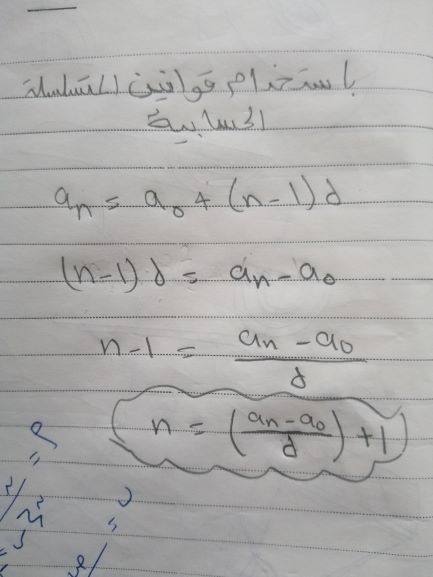 باستخدام قوانين المتسلسلة
الحسابية
aₙ = a₀ + (n-1)d
(n-1)d = aₙ - a₀
n-1 = (aₙ - a₀)/d
n = ((aₙ - a₀)/d) + 1